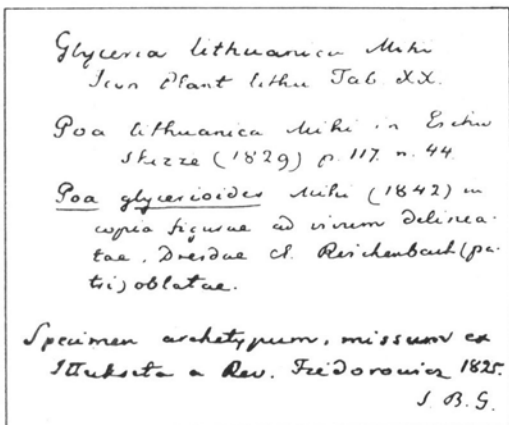 Glyceria lithuanica Mihi
Icon Plant lithu Tab XX.
Poa lithuanica Mihi in Eichw
Skizze (1829) p. 117. n. 44.
Poa glycerioides Mihi (1842) in
copia figurae ad vivum delinea-
tae, Dresdae cl. Reichenbach (pa-
tri) oblatae.
Specimen archetypum, missum ex
Illukszta a Rev. Fedorowicz 1825.
J. B. G.